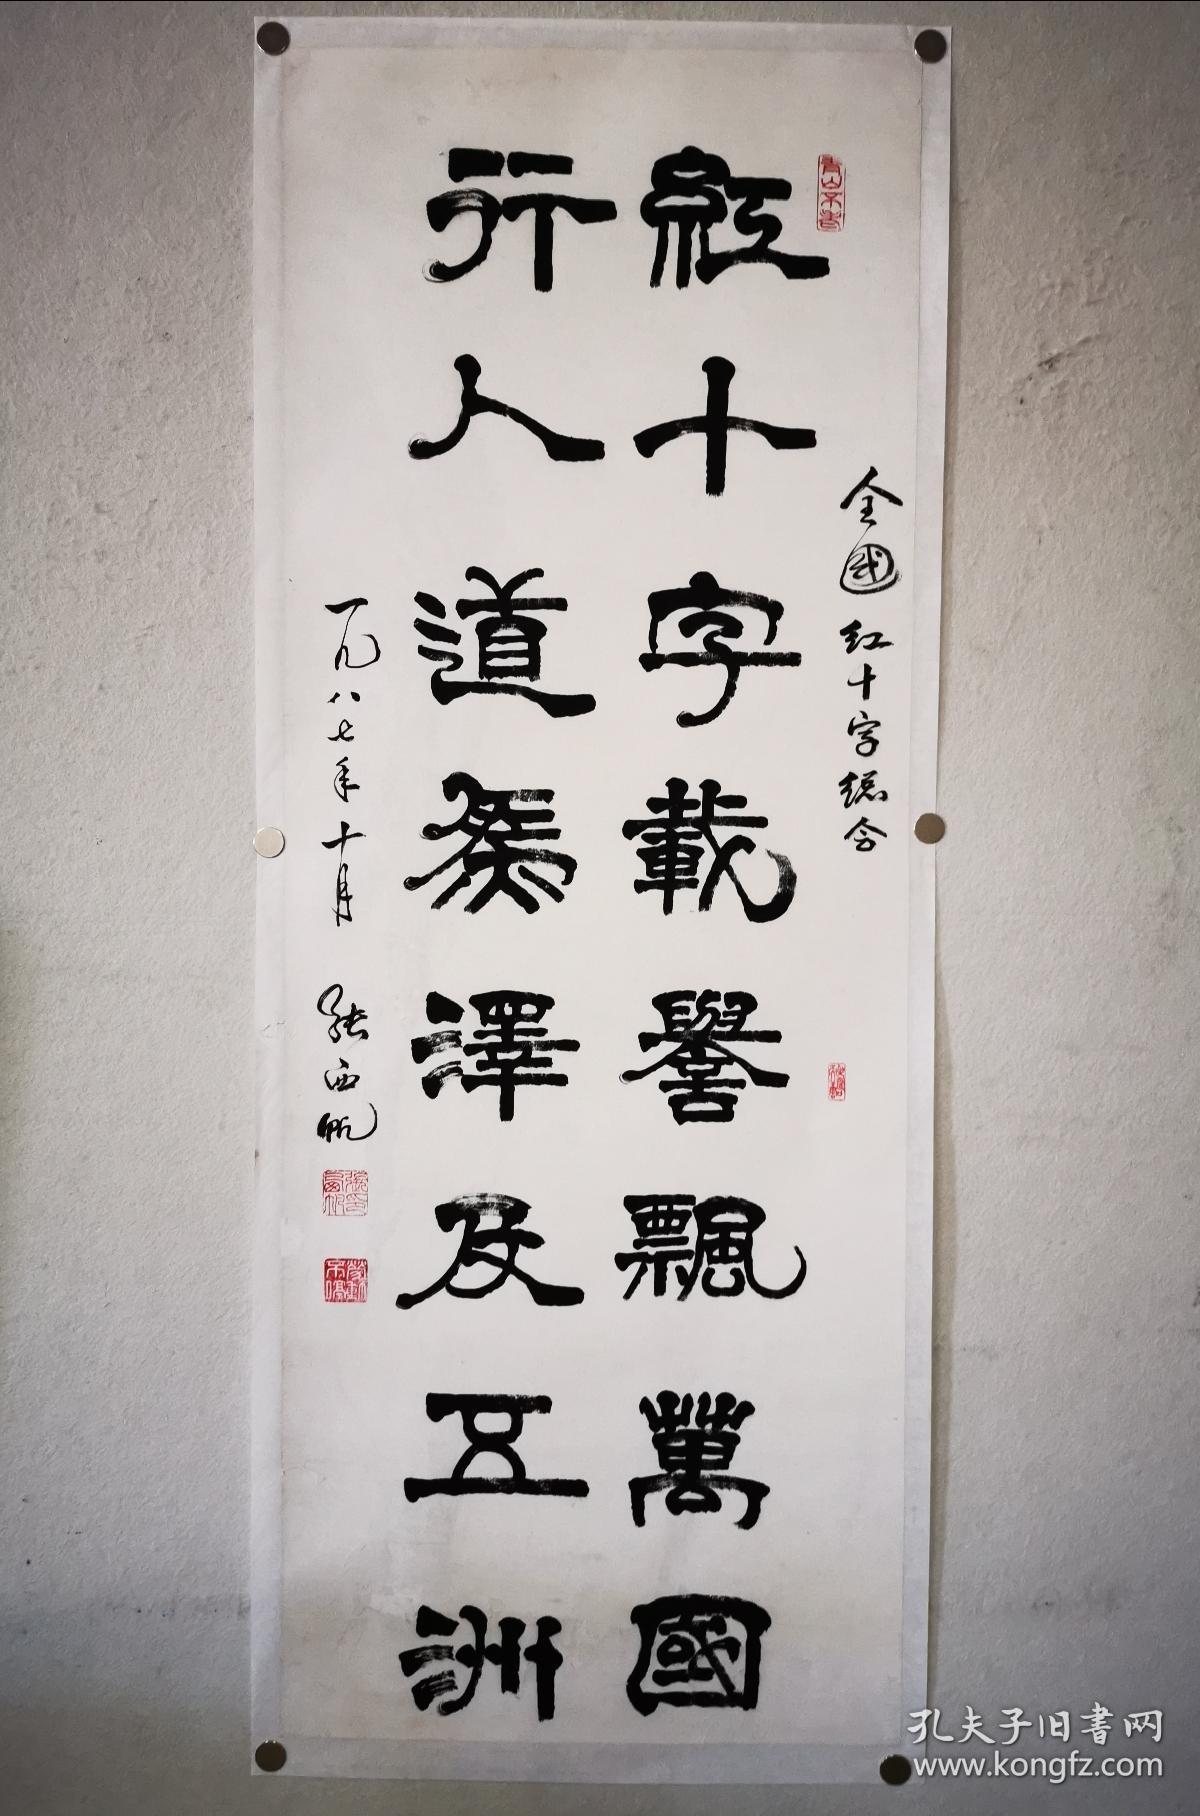 全國红十字總会
紅十字載譽飄萬國
行人道矦澤及五洲
一九八七年十月 張西帆
孔夫子旧書网
www.kongfz.com